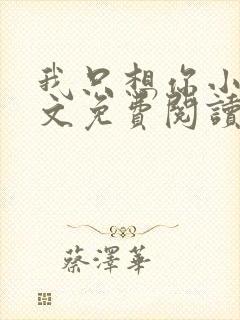 我只想你小
文免費閱讀
蔡澤華